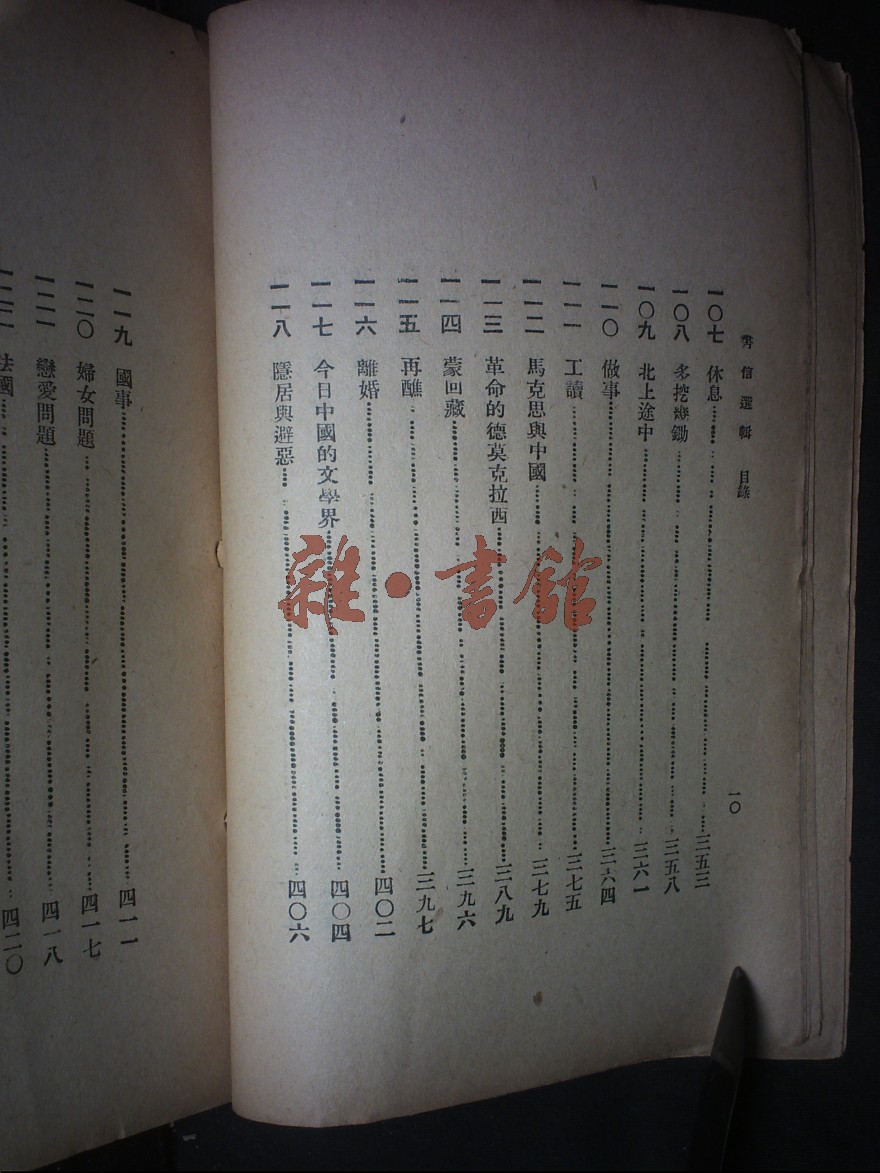 書信選輯 目錄
一〇
一〇七 休息 三五三
一〇八 多挖幾鋤 三五八
一〇九 北上途中 三六一
一一〇 做事 三六四
一一一 工讀 三七五
一一二 馬克思與中國 三七九
一一三 革命的德莫克拉西 三八九
一一四 蒙回藏 三九六
一一五 再醮 三九七
一一六 離婚 四〇二
一一七 今日中國的文學界 四〇四
一一八 隱居與避惡 四〇六
一一九 國事 四一一
一二〇 婦女問題 四一七
一二一 戀愛問題 四一八
一二二 法國 四二〇
雜·書館